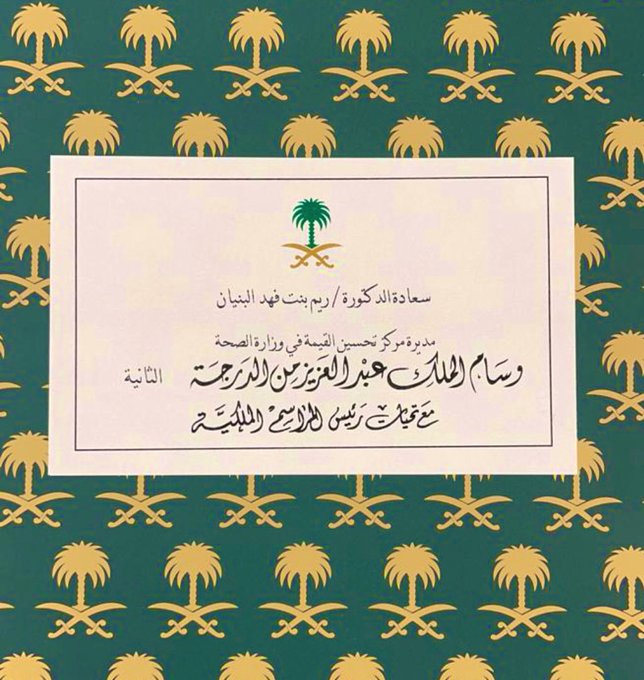 سعادة الدكتورة/ ريم بنت فهد البنيان
مديرة مركز تحسين القيمة في وزارة الصحة
وسام الملك عبد العزيز من الدرجة الثانية
مع تحيات رئيس المراسم الملكية